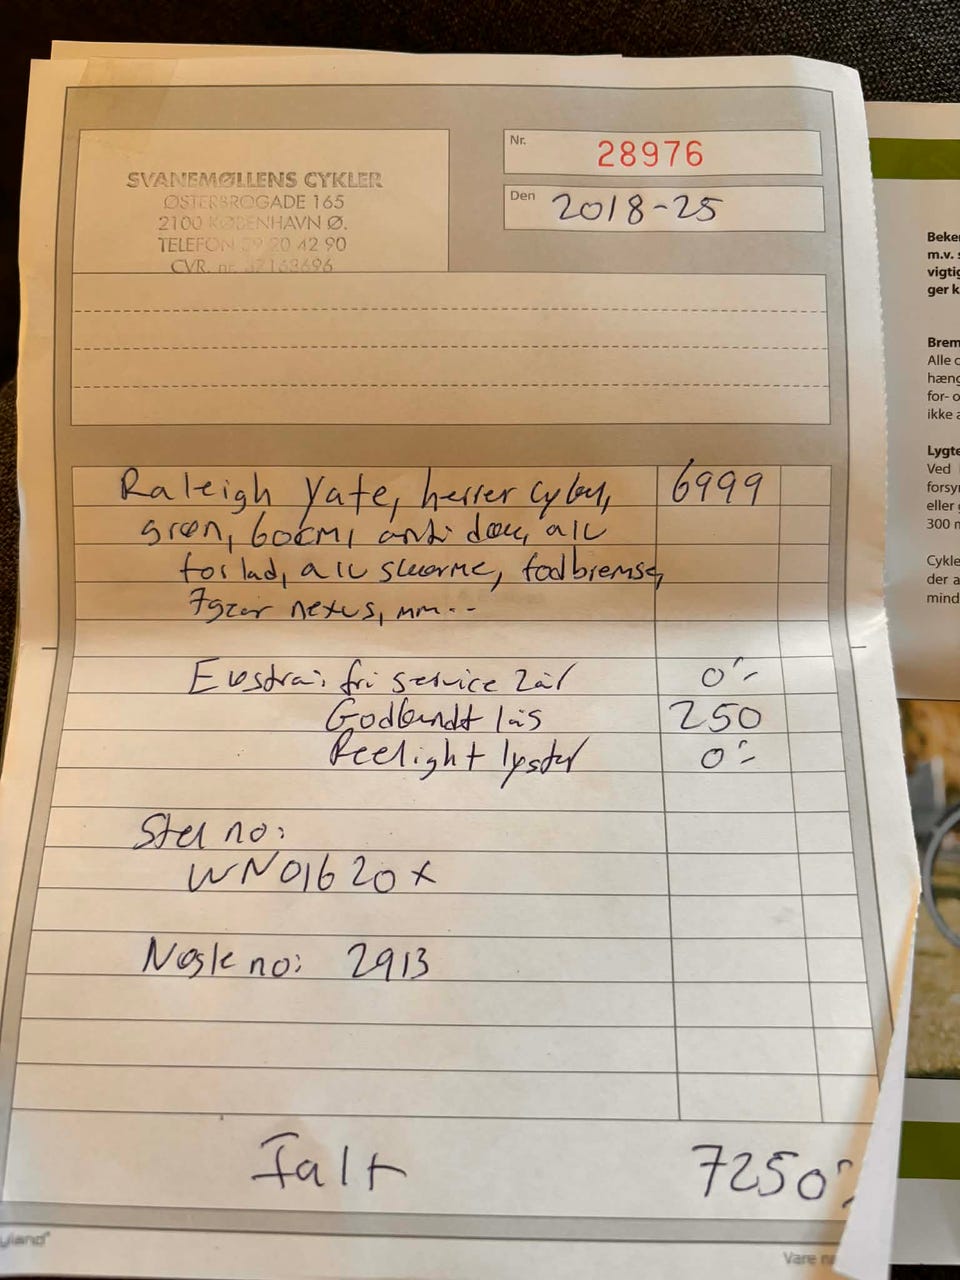 SVANEMØLLENS CYKLER
ØSTERBROGADE 165
2100 KØBENHAVN Ø.
TELEFON 39 20 42 90
CVR. nr. 37163696
Nr. 28976
Den 2018-25
Raleigh Yate, herrer cykel, 6999
grøn, 60cm, anti dæk, alu
for lad, alu skærme, fodbremse,
7gear nexus, mm--
Ekstra: fri service 2år 0,-
Godkendt lås 250
Reelight lygter 0,-
Stel no:
WN01620x
Nøgle no: 2913
I alt 7250,-
yland®
Vare
Beke
m.v. s
vigtig
ger k
Brem
Alle c
hæng
for- o
ikke a
Lygte
Ved
forsy
eller g
300 m
Cykle
der a
mind